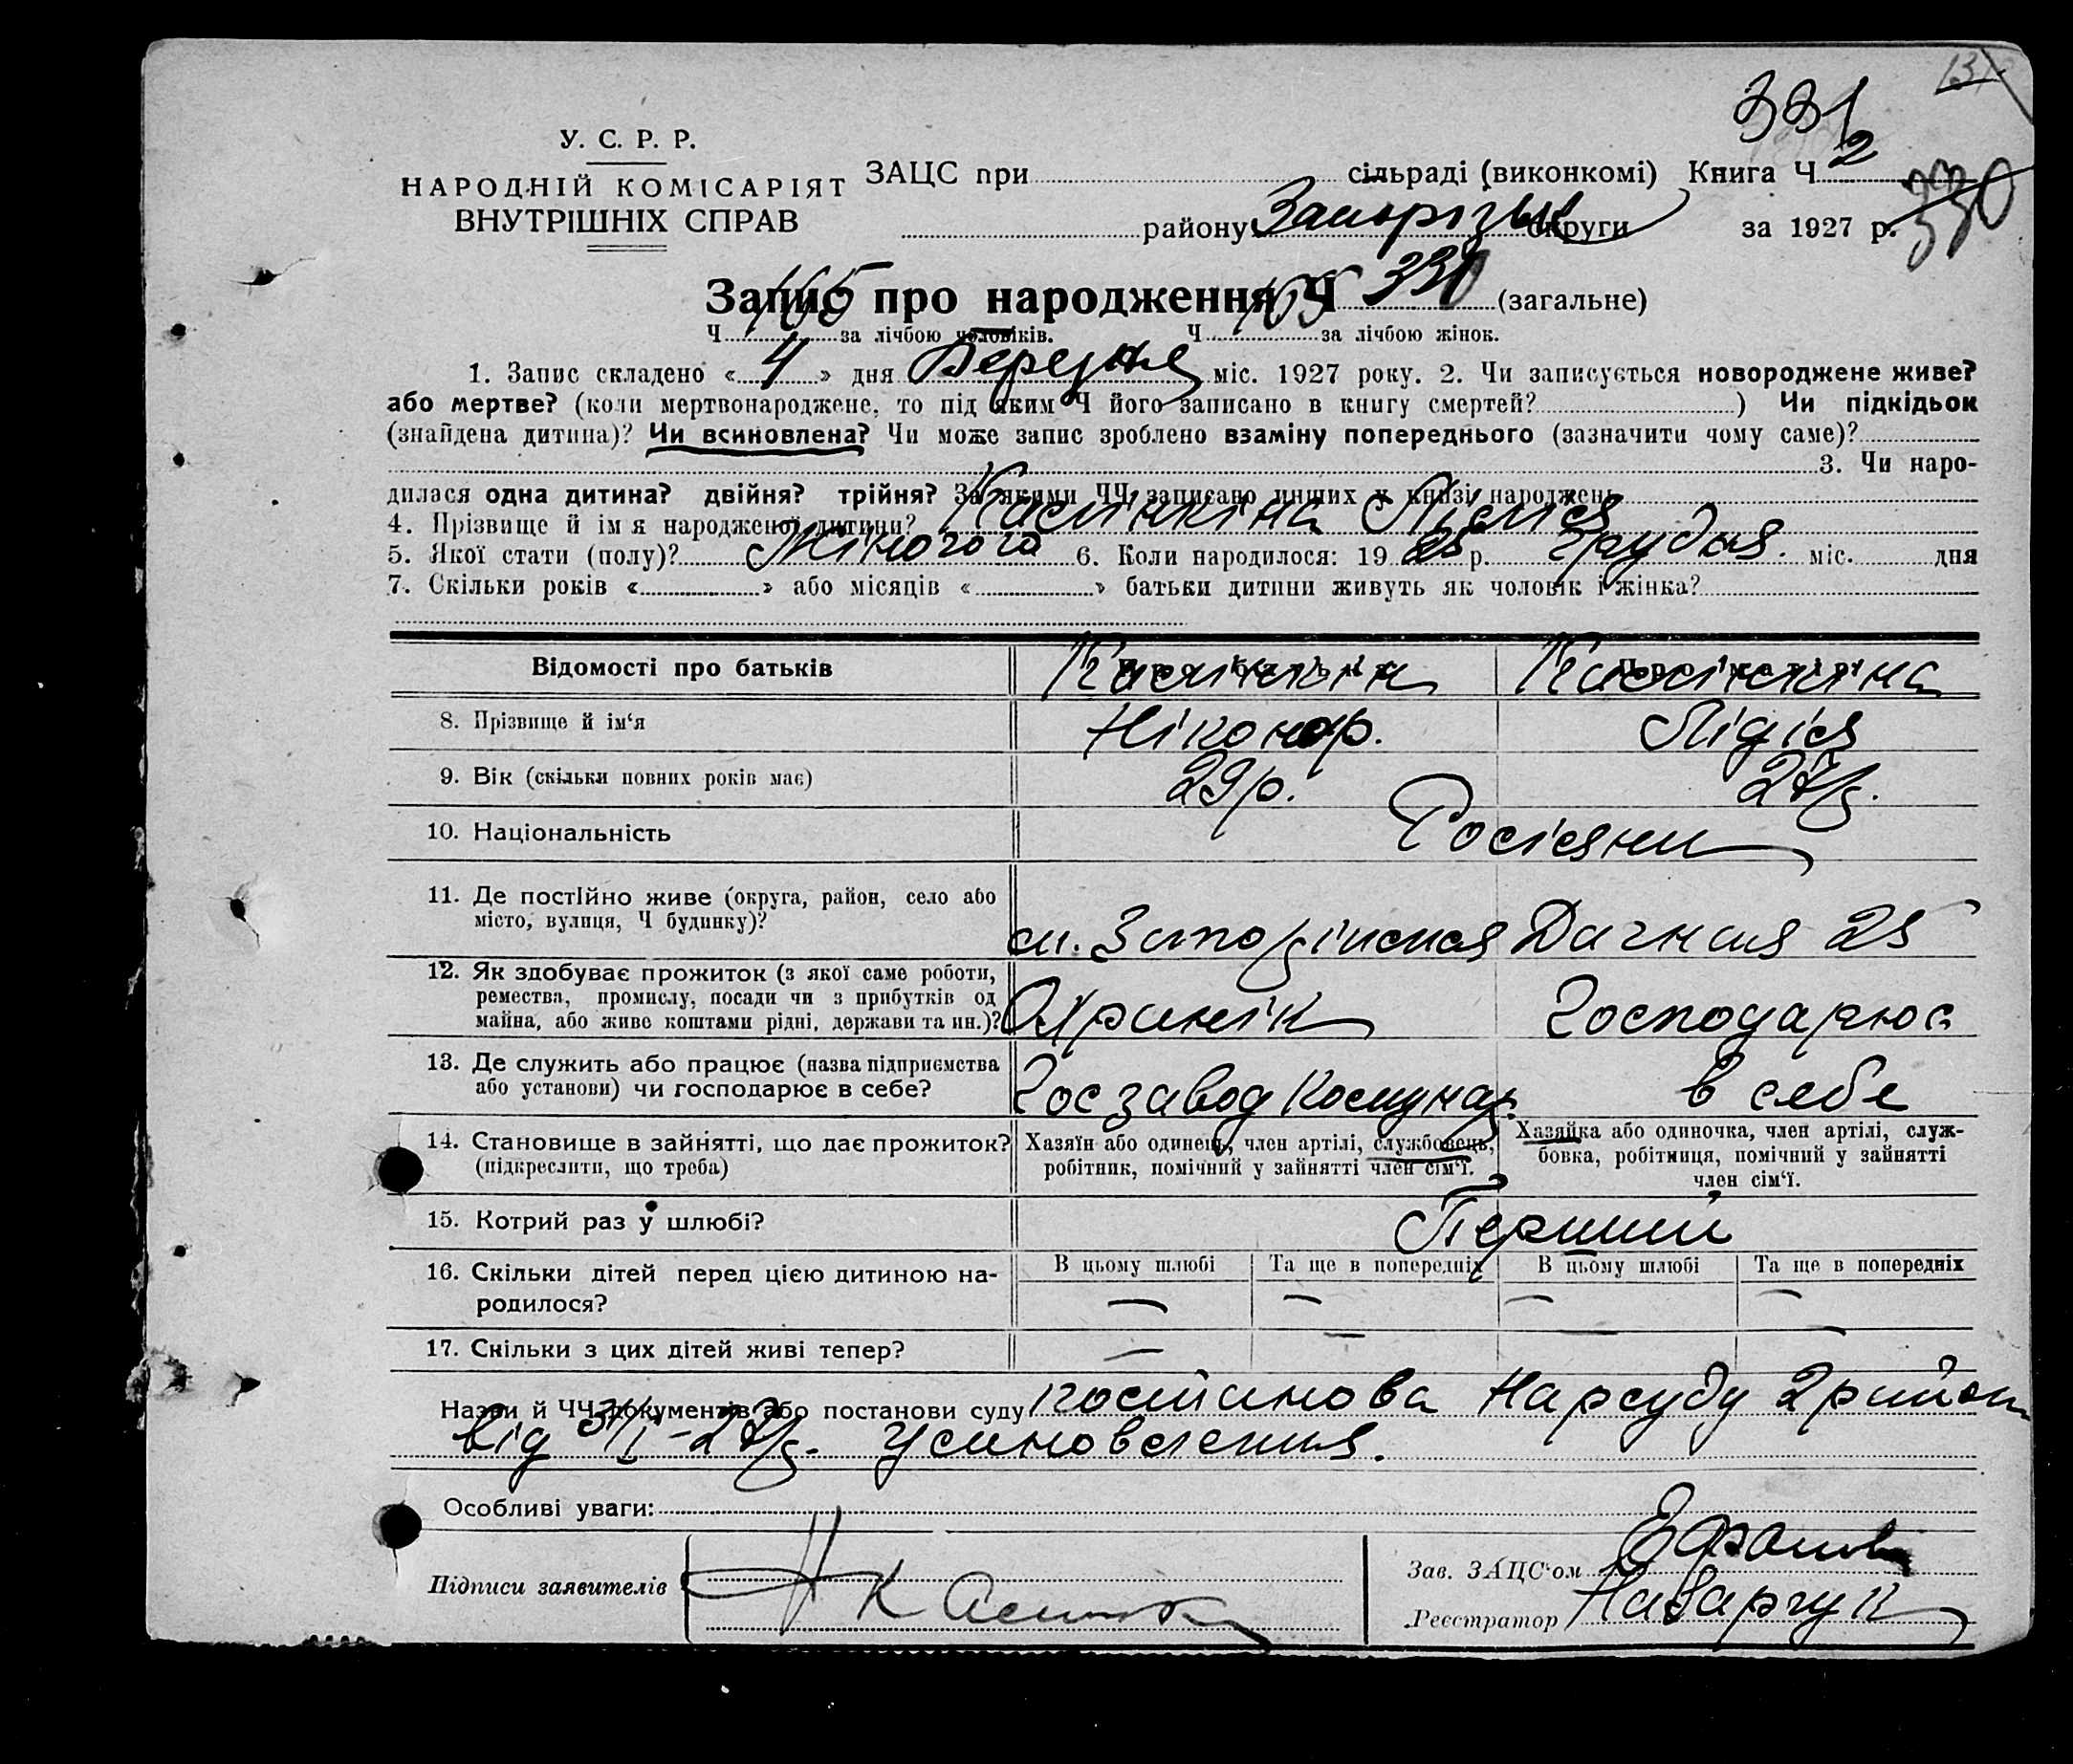 331
У. С. Р. Р.
НАРОДНІЙ КОМІСАРІЯТ
ВНУТРІШНІХ СПРАВ
ЗАЦС при сільраді (виконкомі) Книга Ч. 2
району округи за 1927 р. 330
Запис про народження Ч 330 (загальне)
Ч 165 за лічбою чоловіків. Ч 165 за лічбою жінок.
1. Запис складено «4» дня Березня міс. 1927 року. 2. Чи записується новороджене живе?
або мертве? (коли мертвонароджене, то під яким Ч його записано в книгу смертей? ) Чи підкідьок
(знайдена дитина)? Чи всиновлена? Чи може запис зроблено взаміну попереднього (зазначити чому саме)?
3. Чи наро-
дилася одна дитина? двійня? трійня? За якими ЧЧ записано инших у книзі народжень
4. Прізвище й ім я народженої дитини?
5. Якої стати (полу)? Жіночого 6. Коли народилося: 19 25 р. Грудня. міс. дня
7. Скільки років « » або місяців « » батьки дитини живуть як чоловік і жінка?
Відомості про батьків
8. Прізвище й ім‘я Ніканор. Лідія
9. Вік (скільки повних років має) 29 р. 27 р.
10. Національність Росіяни
11. Де постІйно живе (округа, район, село або
місто, вулиця, Ч будинку)? Дачная 25
12. Як здобуває прожиток (з якої саме роботи,
ремества, промислу, посади чи з прибутків од
майна, або живе коштами рідні, держави та ин.)? Охранік Господарює
13. Де служить або працює (назва підприємства
або установи) чи господарює в себе? Госзавод Комунар. в себе
14. Становище в зайнятті, що дає прожиток? Хазяїн або одинець, член артілі, службовець, Хазяйка або одиночка, член артілі, служ-
(підкреслити, що треба) робітник, помічний у зайнятті член сім‘ї. бовка, робітниця, помічний у зайнятті
член сім‘ї.
15. Котрий раз у шлюбі? Перший
16. Скільки дітей перед цією дитиною на- В цьому шлюбі Та ще в попередніх В цьому шлюбі Та ще в попередніх
родилося? — — — —
17. Скільки з цих дітей живі тепер? — — — —
Назви й ЧЧ документів або постанови суду постанова Нарсуду 2 район
від 31/I-27 р. Усиновлення.
Особливі уваги:
Підписи заявителів
Зав. ЗАЦС‘ом
Реєстратор